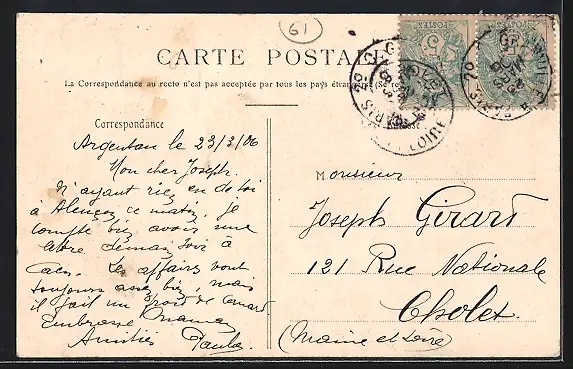 61
CARTE POSTALE
La Correspondance au recto n'est pas acceptée par tous les pays étrangers
Correspondance
Adresse
Argentan le 23/3/06
Mon cher Joseph.
N'ayant rien eu de toi
à Alençon ce matin, je
compte bien avoir une
lettre demain soir à
Caen. Les affaires vont
toujours assez bien, mais
il fait un froid de canard
Embrasse Maman
Amitiés Paula
Monsieur
Joseph Girard
121 Rue Nationale
Cholet
(Maine et Loire)